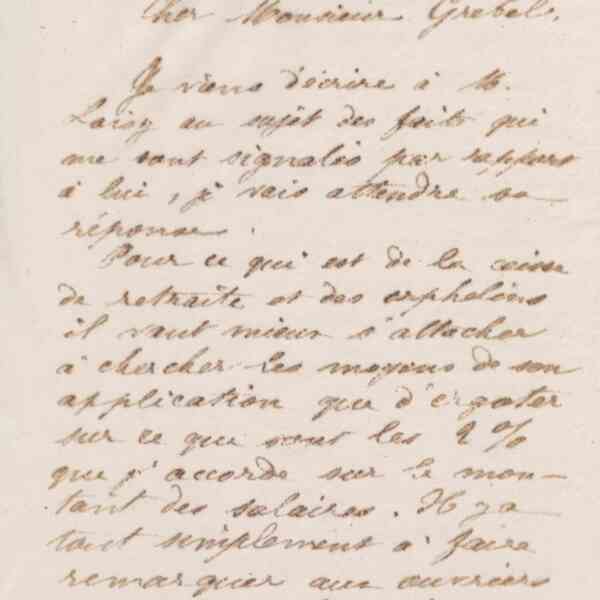 Cher Monsieur Grebel,
Je viens d'écrire à M.
Loisy au sujet des faits qui
me sont signalés par rapport
à lui, je vais attendre sa
réponse.
Pour ce qui est de la caisse
de retraite et des orphelins
il vaut mieux s'attacher
à chercher les moyens de son
application que d'ergoter
sur ce que sont les 2 %
que j'accorde sur le mon-
tant des salaires. Il y a
tout simplement à faire
remarquer aux ouvriers